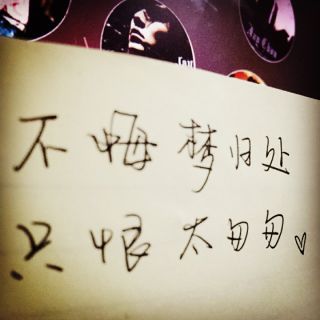 Jay Chou
不悔梦归处
只恨太匆匆